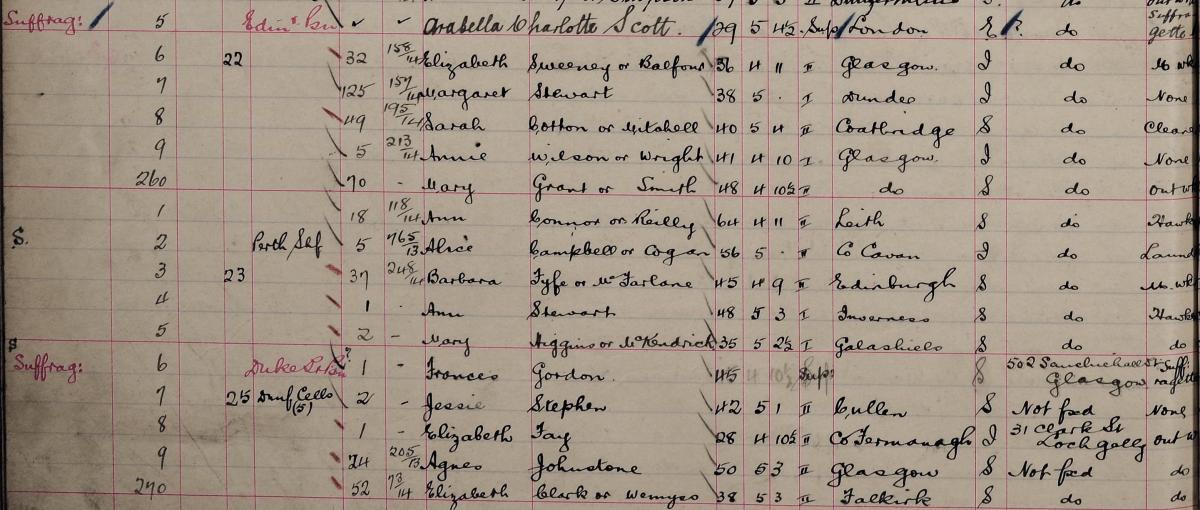 Suffrag: 5 Arabella Charlotte Scott. 29 5 4½ Sup London E ? do
6 22 32 158/14 Elizabeth Sweeney or Balfour 36 4 11 II Glasgow. I do
7 125 157/14 Margaret Stewart 38 5 . I Dundee I do None
8 49 195/14 Sarah Cotton or Mitchell 40 5 4 II Coatbridge S do Cleane
9 5 213/14 Annie Wilson or Wright 41 4 10 I Glasgow. I do None
260 70 - Mary Grant or Smith 48 4 10½ II do S do out w
1 18 118/14 Ann Connor or Reilly 64 4 11 II Leith S do Hawk
S. 2 Perth Slf 5 765/13 Alice Campbell or Cogan 56 5 . II Co Cavan I do Laund
3 23 37 248/14 Barbara Fyfe or McFarlane 45 4 9 II Edinburgh S do M. wk
4 1 - Ann Stewart 48 5 3 I Inverness S do Hawk
5 2 - Mary Higgins or McKendrick 35 5 2½ I Galashiels S do do
S
Suffrag: 6 Duke St 1 - Frances Gordon. 45 4 10½ Sup: S 502 Sauchiehall St Suff
Glasgow ragette
7 25 Dunf Cells (5) 2 - Jessie Stephen 42 5 1 II Cullen S Not fxd None
8 1 - Elizabeth Fay 28 4 10½ II Co Fermanagh I 31 Clark St Lochgelly out w
9 24 205/13 Agnes Johnstone 50 5 3 II Glasgow S Not fxd do
270 52 73/14 Elizabeth Clark or Wemyss 38 5 3 II Falkirk S do do